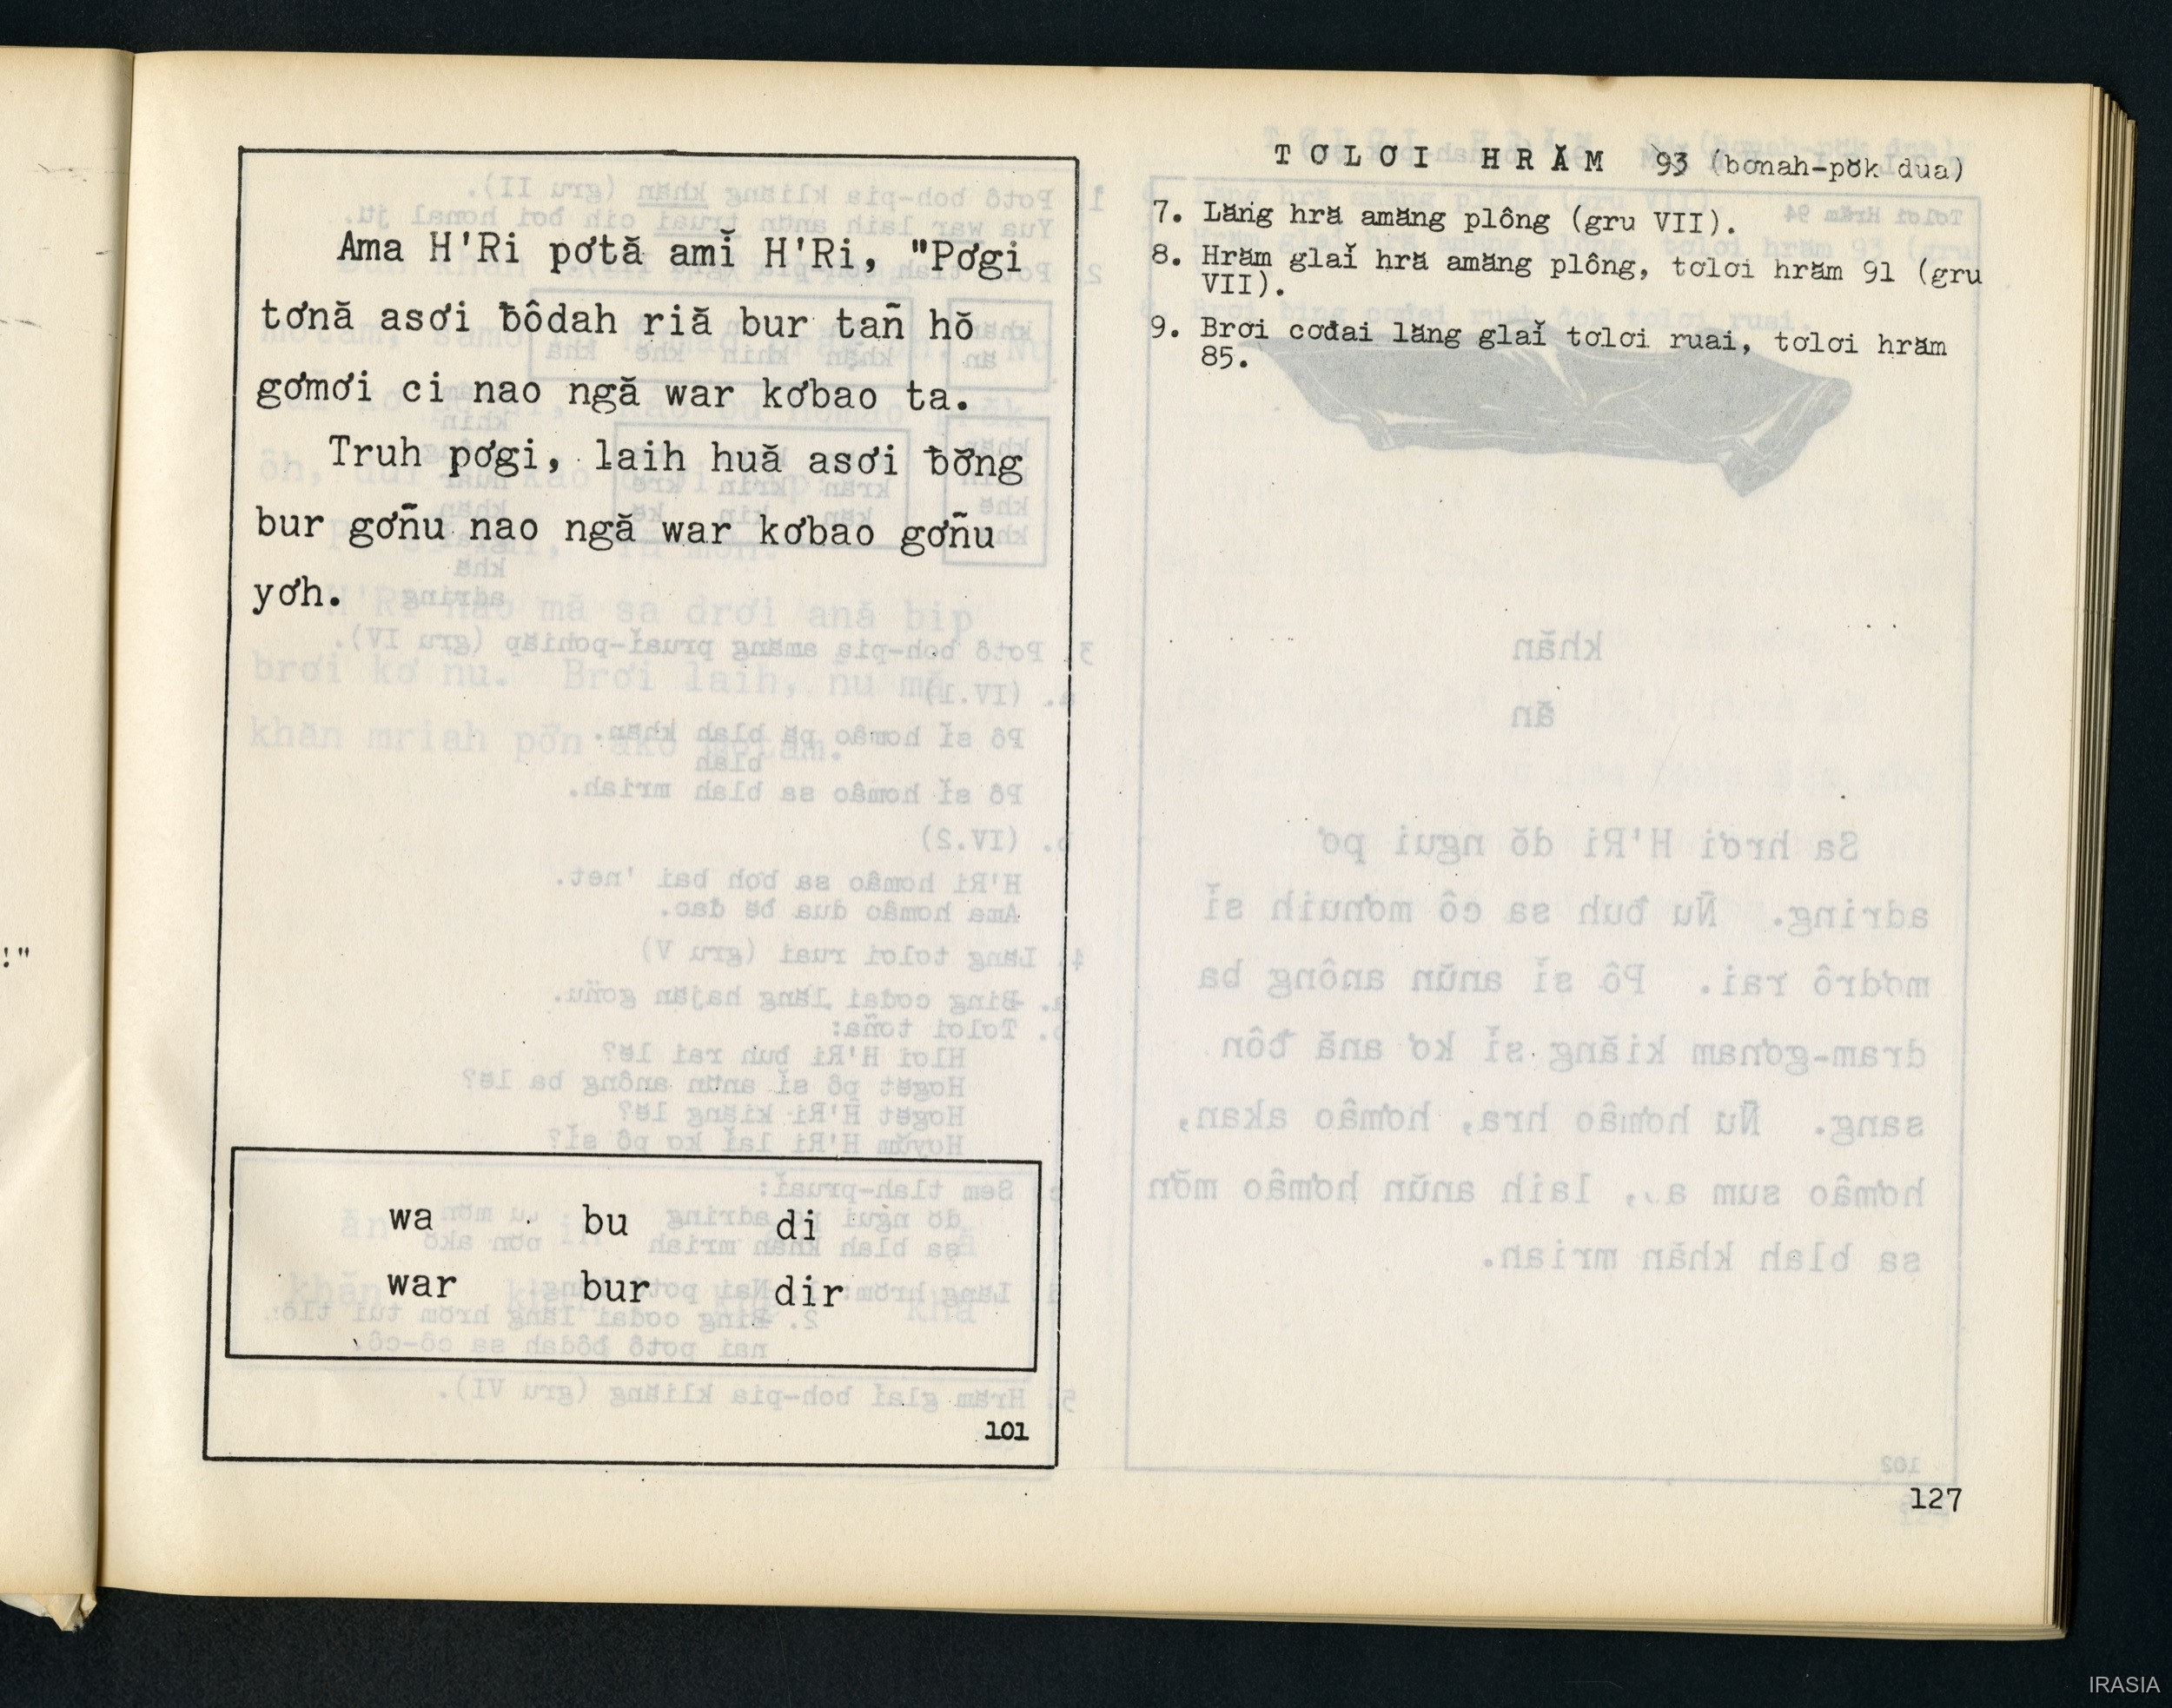 Ama H'Ri pơtă amĭ H'Ri, "Pơgi
tơnă asơi ƀôdah riă bur tañ hŏ
gơmơi ci nao ngă war kơbao ta.
Truh pơgi, laih huă asơi ƀơ̆ng
bur gơñu nao ngă war kơbao gơñu
yơh.
wa bu di
war bur dir
101
TƠLƠI HRĂM 93 (bơnah-pŏk dua)
7. Lăng hră amăng plông (gru VII).
8. Hrăm glaĭ hră amăng plông, tơlơi hrăm 91 (gru
VII).
9. Brơi cơđai lăng glaĭ tơlơi ruai, tơlơi hrăm
85.
127
!"
IRASIA